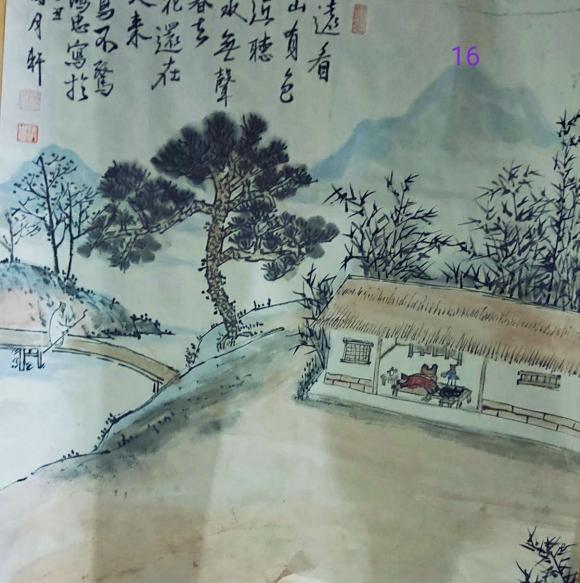 16
遠看
山有色
近聽
水無聲
春去
花還在
人來
鳥不驚
忠寫於
月軒